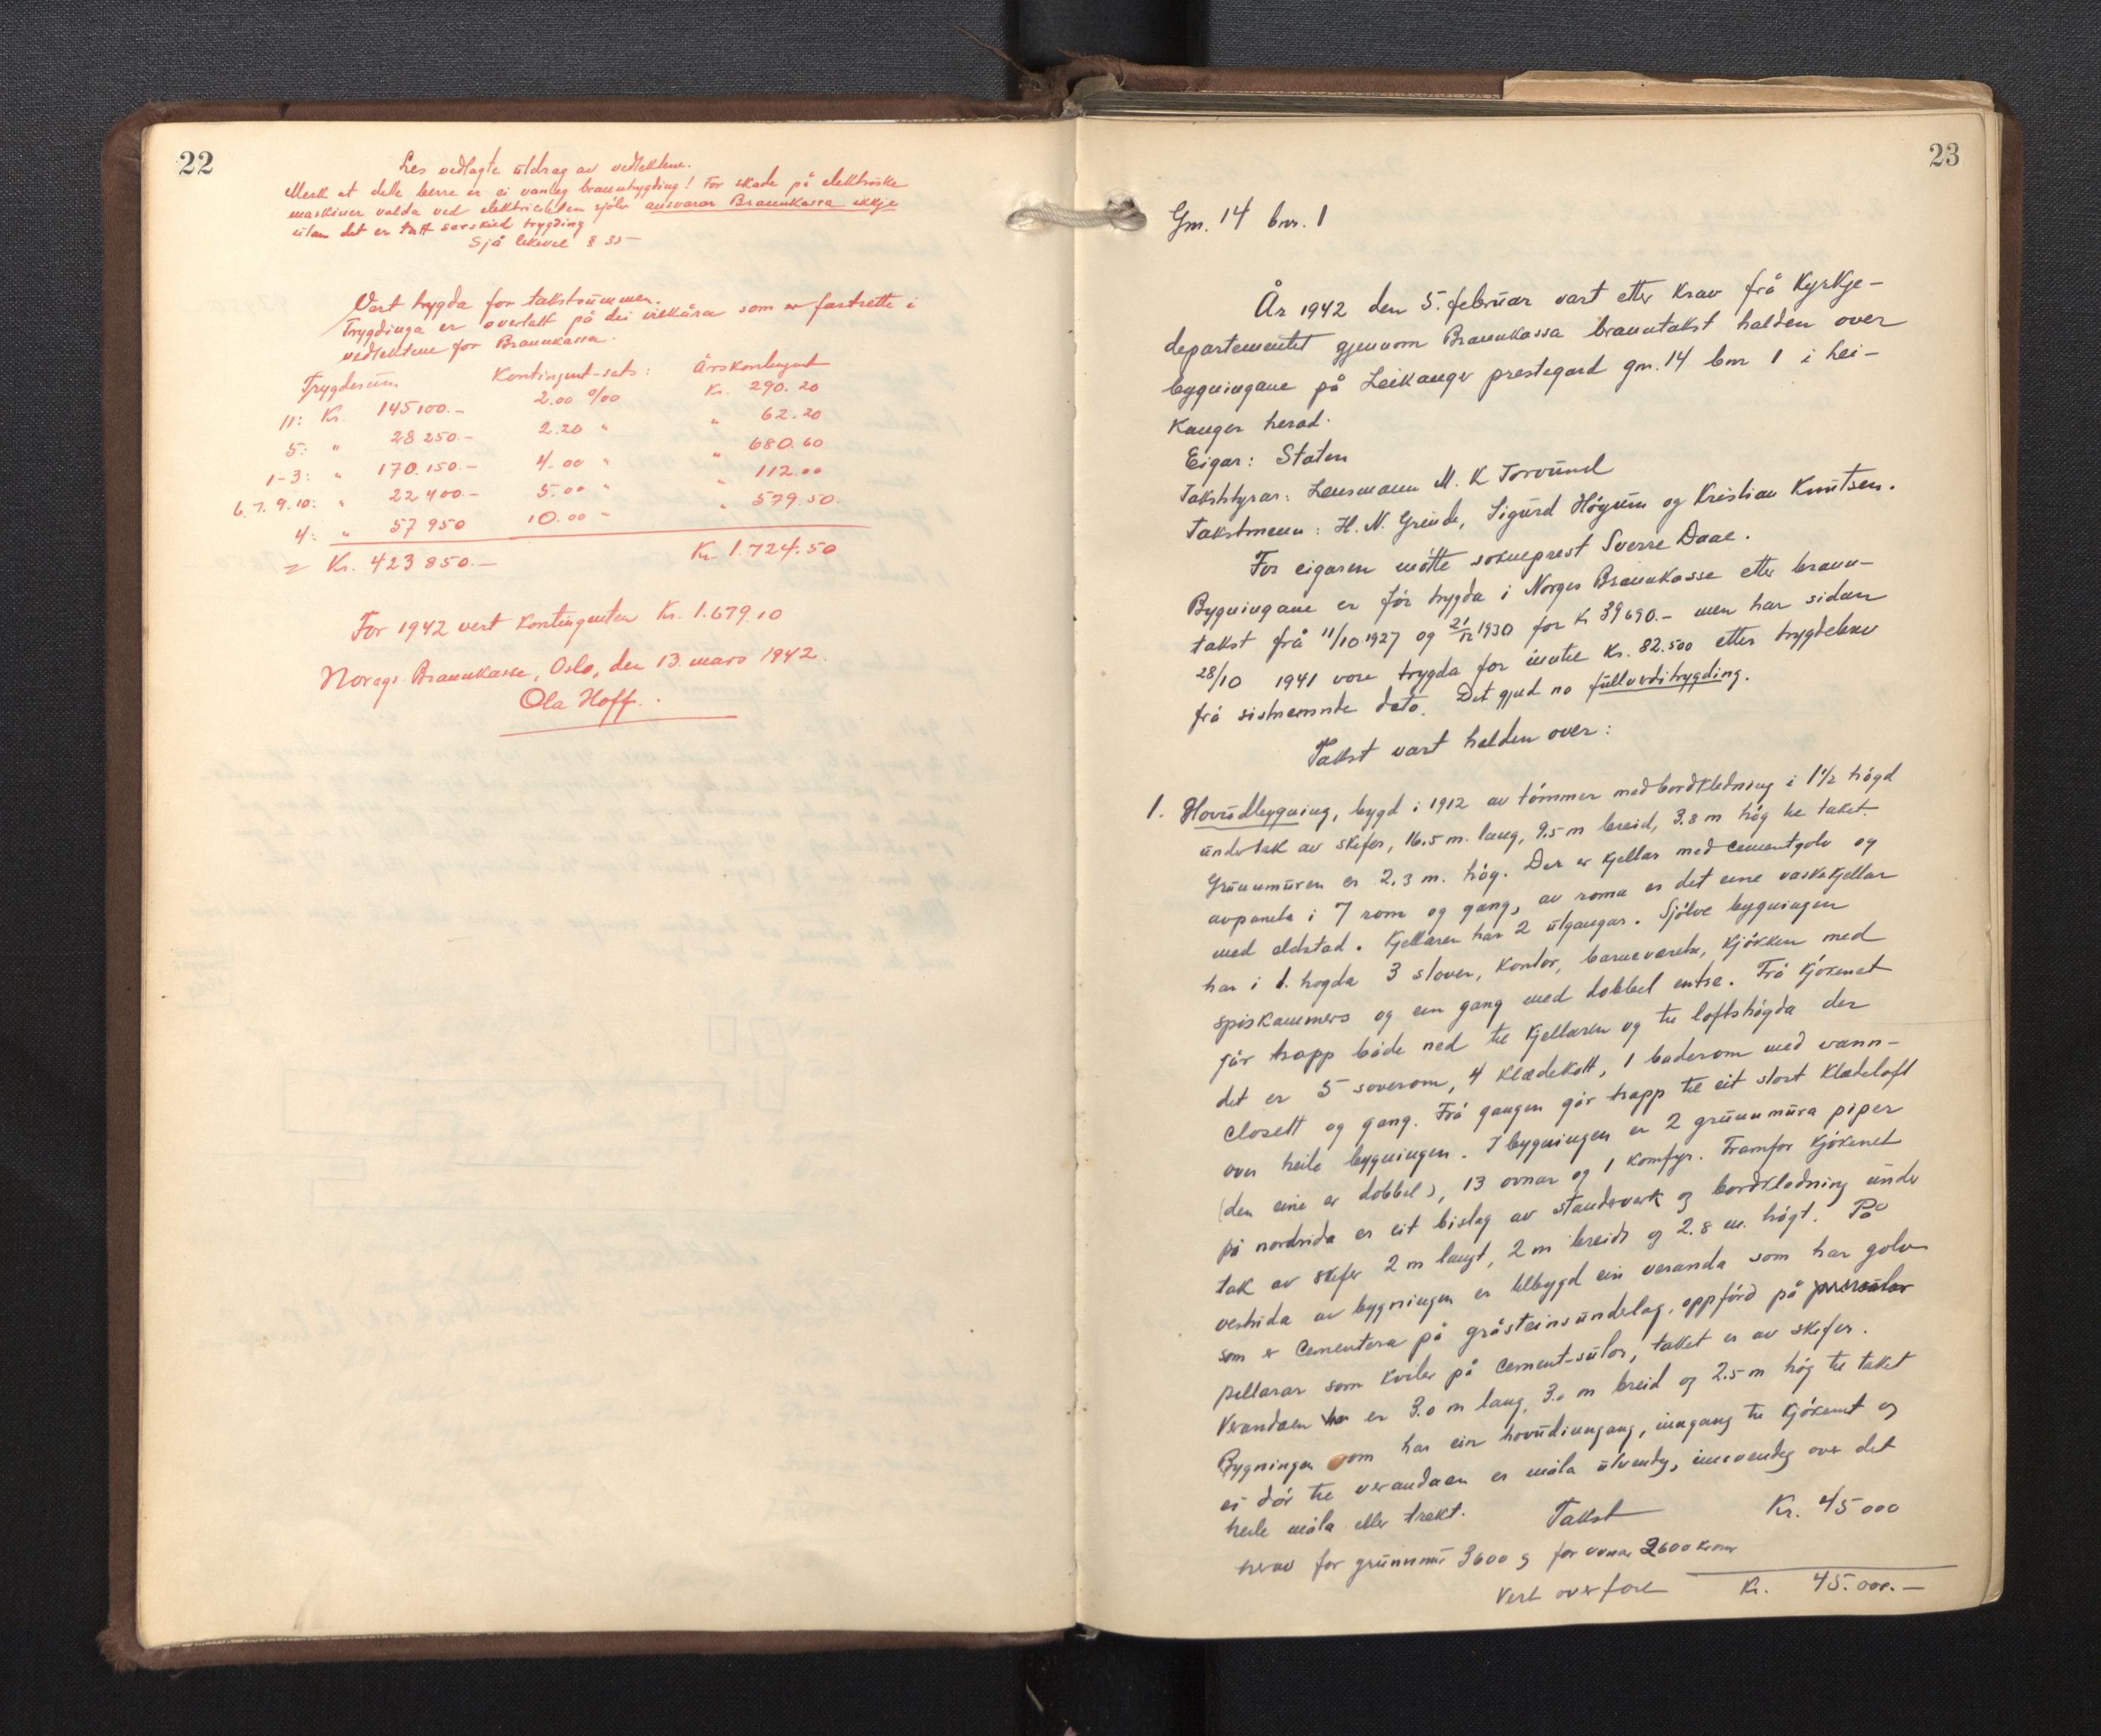 22
Les vedlagte utdrag av vedtektene.
Merk at dette berre er ei vanleg branntrygding! For skade på elektriske
maskiner valda ved elektrisiteten sjølv ansvarar Brannkassa ikkje
utan det er tatt serskild trygding
Sjå likevel § 35 –
Vert trygda for takstsummen.
Trygdinga er overtatt på dei vilkåra som er fastsette i
vedtektene for Brannkassa.
Trygdesum Kontingent-sats: Årskontingent
11: Kr. 145100.– 2.00 ‰ Kr. 290.20
5: " 28 250.– 2.20 " " 62.20
1-3: " 170.150.– 4.00 " " 680.60
6.7.9.10: " 22 400.– 5.00 " " 112.00
4: " 57 950 10.00 – " 579.50
= Kr. 423 850.– Kr 1.724.50
For 1942 vert kontingenten Kr. 1.679.10
Noregs Brannkasse, Oslo, den 13. mars 1942.
Ola Hoff.
23
Gnr. 14 bnr. 1
År 1942 den 5. februar vart etter krav frå Kyrkje-
departementet gjennom Brannkassa branntakst halden over
bygningane på Leikanger prestegard gnr. 14 bnr 1 i Lei-
kanger herad.
Eigar: Staten
Takststyrar: Lensmann M. K Torvund
Takstmenn: H. N. Grinde, Sigurd Høgum og Kristian Knutsen.
For eigaren møtte sokneprest Sverre Daae.
Bygningane er før trygda i Norges Brannkasse etter brann-
takst frå 11/10 1927 og 21/12 1930 for kr 39690.– men har sidan
28/10 1941 vore trygda for inntil Kr. 82.500 etter trygdebrev
frå sistnemnde dato. Det gjeld no fullverditrygding.
Takst vart halden over:
1. Hovudbygning, bygd i 1912 av tømmer med bordkledning i 1½ høgd
under tak av skifer, 16.5 m. lang, 9.5 m breid, 3.8 m høg til taket.
Grunnmuren er 2.3 m. høg. Der er kjellar med cementgolv og
avpanela i 7 rom og gang, av roma er det eine vaskekjellar
med eldstad. Kjellaren har 2 utgangar. Sjølve bygningen
har i 1. høgda 3 stover, kontor, barneværelse, kjøkken med
spiskammers og ein gang med dobbel entre. Frå kjøkenet
går trapp både ned til kjellaren og til loftshøgda der
det er 5 soverom, 4 klædekott, 1 baderom med vann-
closett og gang. Frå gangen går trapp til eit stort klædeloft
over heile bygningen. I bygningen er 2 grunnmura piper
(den eine er dobbel), 13 ovnar og 1 komfyr. Framfor kjøkenet
på nordsida er eit bislag av standverk og bordkledning under
tak av skifer 2 m langt, 2 m breidt og 2.8 m. høgt. På
vestsida av bygningen er tilbygd ein veranda som har golv
som er cementera på gråsteinsunderlag, oppførd på
pillarar som kviler på cement-sulor, taket er av skifer.
Verandaen er 3.0 m lang, 3.0 m breid og 2.5 m høg til taket
Bygningen som har ein hovudinngang, inngang til kjøkenet og
ei dør til verandaen er måla utvendig, innvendig over det
heile måla eller trekt. Takst Kr. 45 000
herav for grunnmur 3600 og for ovnar 2600 kroner
Vert overført Kr. 45.000.–